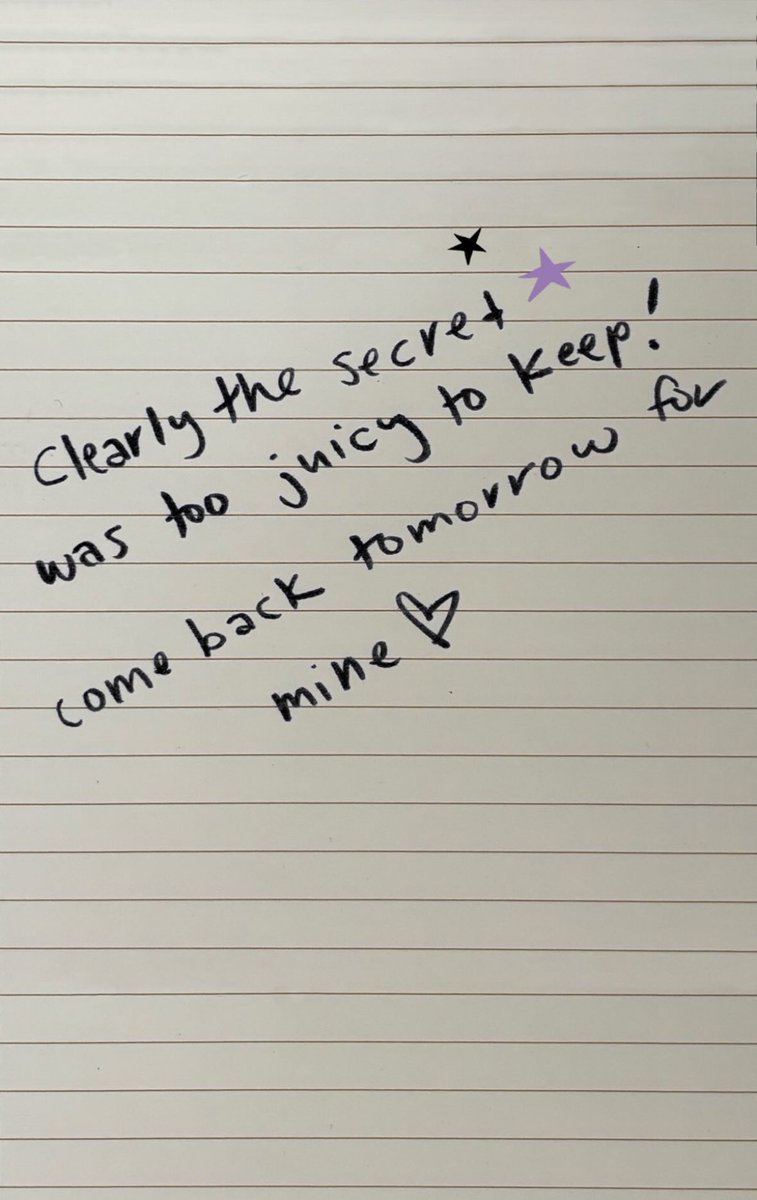 Clearly the secret
was too juicy to keep!
come back tomorrow for
mine